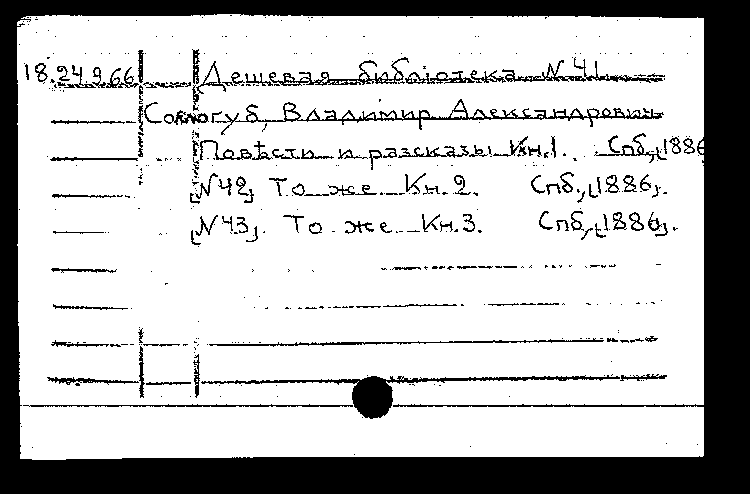 18.24.9.66 Дешевая библіотека N 41
Соллогуб, Владимир Александрович
Повѣсти и разсказы Кн.1. Спб., [1886
[N 42] То же Кн. 2. Спб., [1886].
[N 43]. То же Кн. 3. Спб., [1886].